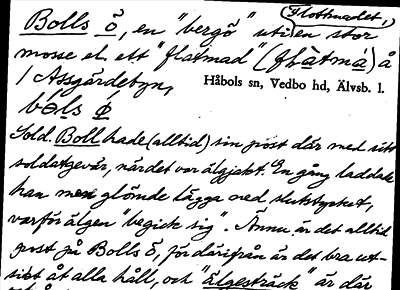 Flottnadet,
Bolls ö, en "bergö" uti en stor
mosse el. ett "flatmad" (flàtmá) å
/ Assgärdebyn,
Håbols sn, Vedbo hd, Älvsb. l.
bols ø
Sold. Boll hade (alltid) sin post där med sitt
soldatgevär, när det var älgjakt. En gång laddade
han men glömde lägga ned slutstycket,
varför älgen "begick sig". Ännu är det alltid
post på Bolls ö, för därifrån är det bra ut-
sikt åt alla håll, och "älgesträck" är där